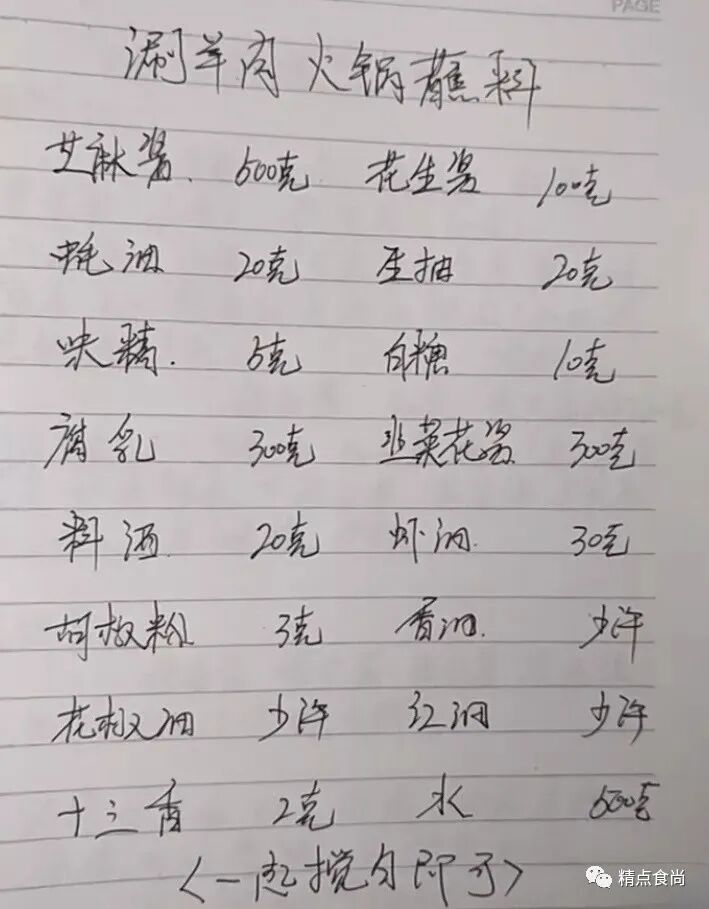 PAGE
涮羊肉火锅蘸料
芝麻酱. 500克 花生酱 100克
蚝油 20克 生抽 20克
味精. 5克 白糖 10克
腐乳 300克 韭菜花酱 300克
料酒 20克 虾油. 30克
胡椒粉 3克 香油. 少许
花椒油 少许 红油 少许
十三香 2克 水 500克
<一起搅匀即可>
精点食尚